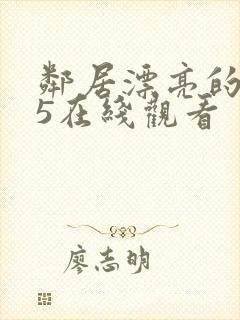 鄰居漂亮的
5在綫觀看
廖志明